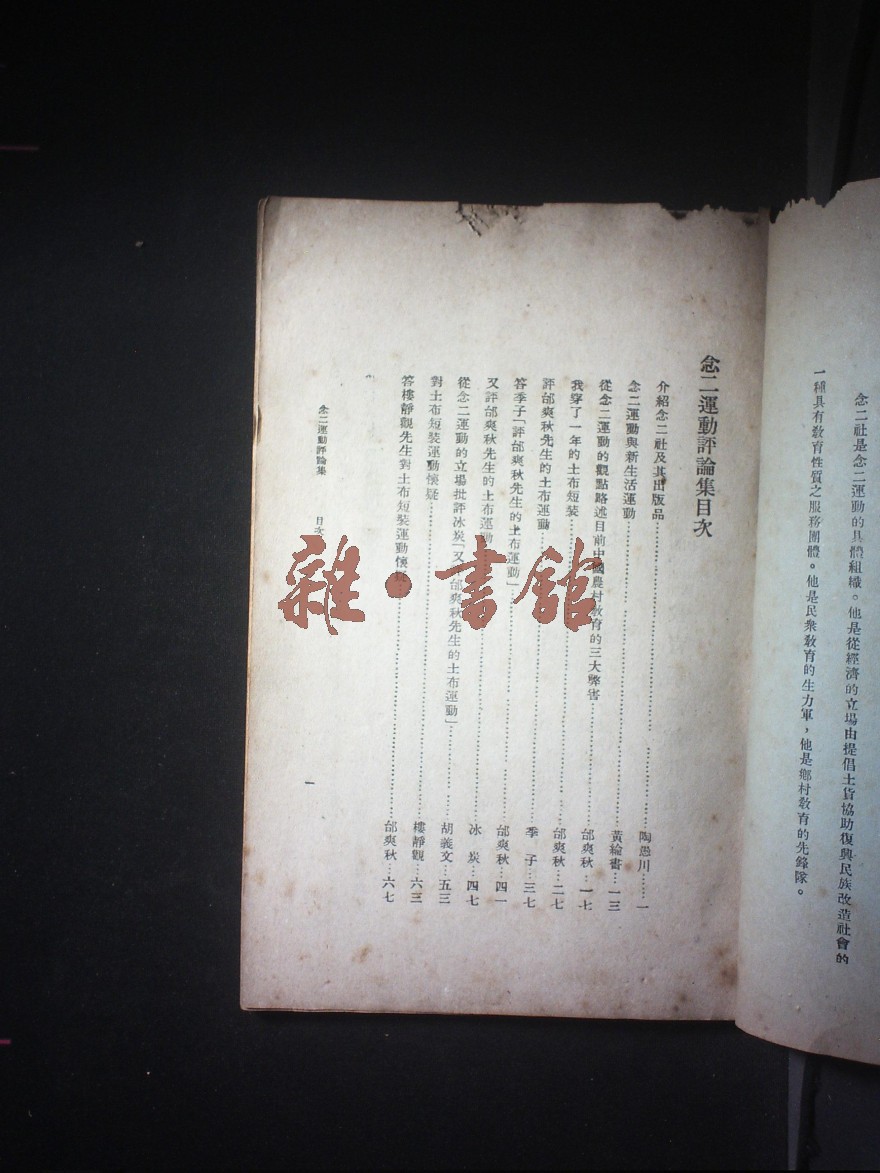 念二社是念二運動的具體組織。他是從經濟的立場由提倡土貨協助復興民族改造社會的
一種具有教育性質之服務團體。他是民衆教育的生力軍，他是鄉村教育的先鋒隊。
念二運動評論集目次
介紹念二社及其出版品……陶愚川……一
念二運動與新生活運動……黃綸書…一三
從念二運動的觀點略述目前中國農村教育的三大弊害……邰爽秋…一七
我穿了一年的土布短裝……邰爽秋…二七
評邰爽秋先生的土布運動……季　子…三七
答季子「評邰爽秋先生的土布運動」……邰爽秋…四一
又評邰爽秋先生的土布運動……冰　炭…四七
從念二運動的立場批評冰炭「又評邰爽秋先生的土布運動」……胡義文…五三
對土布短裝運動懷疑……樓靜觀…六三
答樓靜觀先生對土布短裝運動懷疑……邰爽秋…六七
念二運動評論集　目次
一
雜·書館